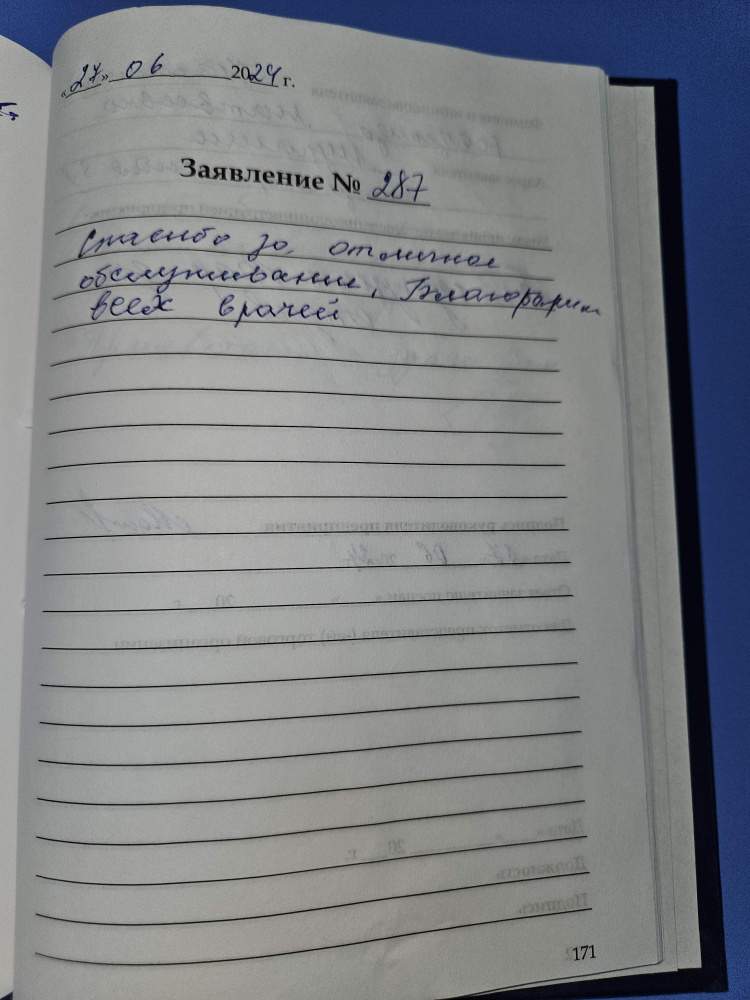 «27» 06 2024 г.
Заявление № 287
Спасибо за отличное
обслуживание, Благодарим
всех врачей
171